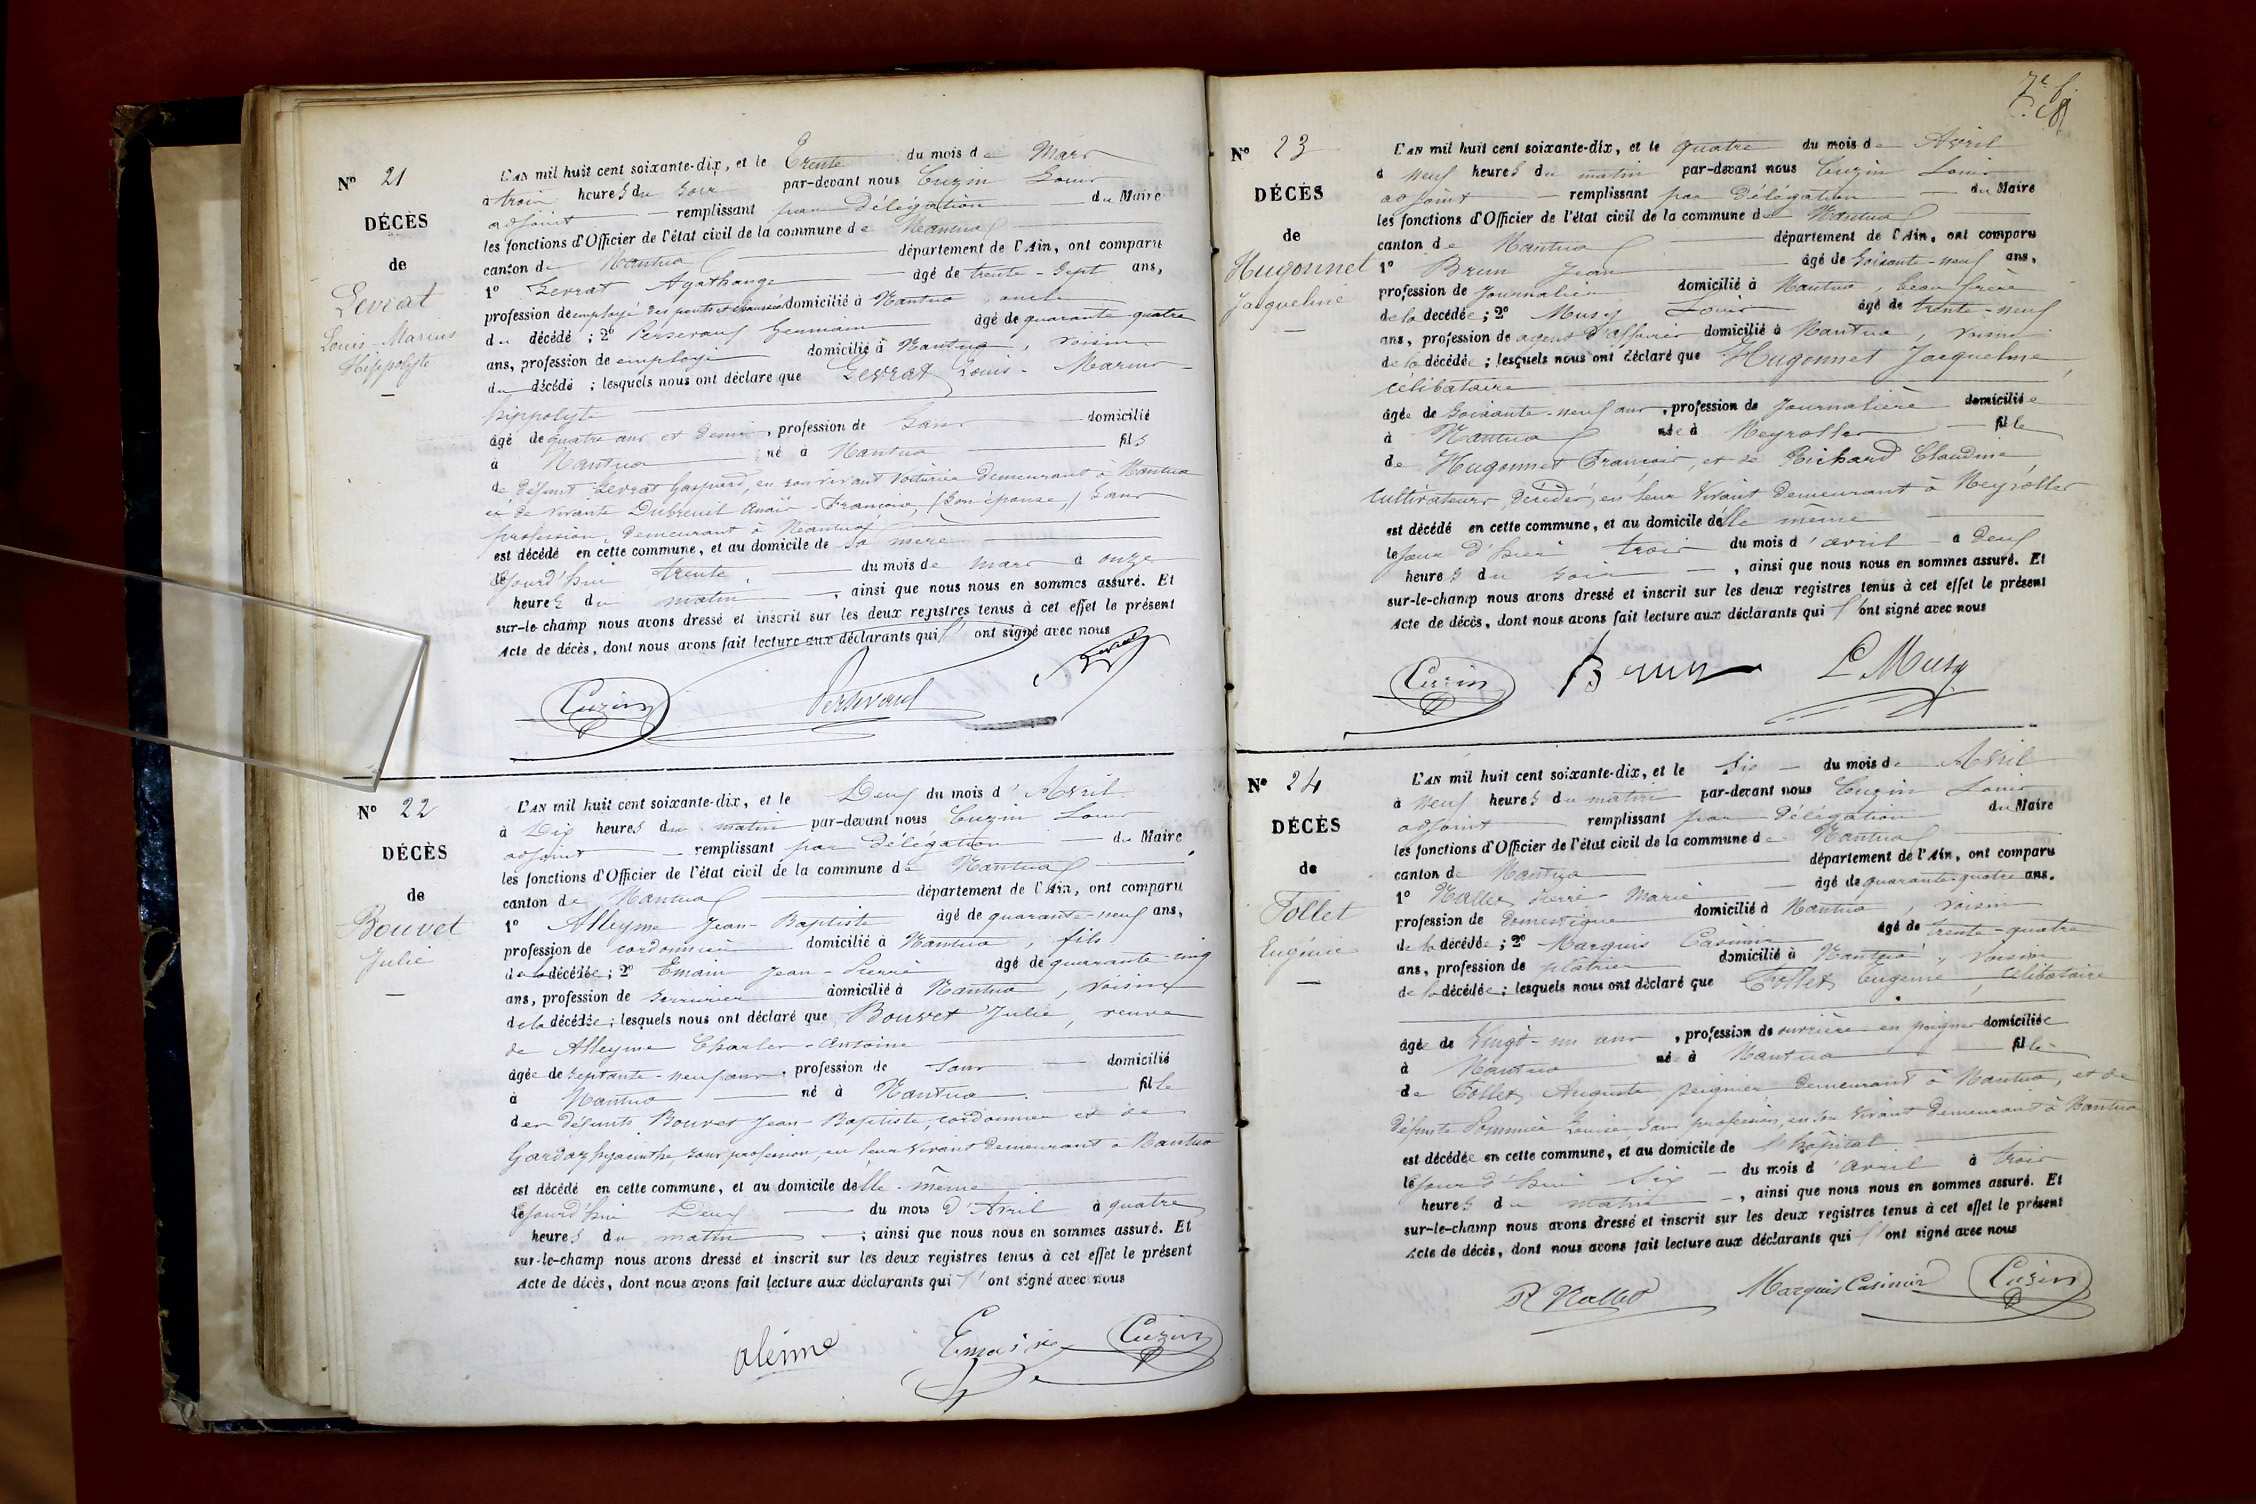 Nº 21
DÉCÈS
de
Levrat
Louis-Marius
Hippolyte
L'AN mil huit cent soixante-dix, et le Trente du mois de Mars
à trois heures du soir par-devant nous Cuzin Louis
adjoint remplissant par Délégation du Maire
les fonctions d'Officier de l'état civil de la commune de Nantua
canton de Nantua département de l'Ain, ont comparu
1º Levrat Agathange âgé de trente-sept ans,
profession de employé des ponts et chaussées domicilié à Nantua oncle
du décédé ; 2º Perseraud Germain âgé de quarante quatre
ans, profession de employé domicilié à Nantua, voisin
du décédé ; lesquels nous ont déclaré que Levrat Louis-Marius
hippolyte
âgé de quatre ans et demi, profession de sans domicilié
à Nantua né à Nantua fils
de défunt Levrat Gaspard, en son vivant voiturier demeurant à Nantua
et de vivante Dubreuil Anaïs-Françoise, (son épouse,) sans
profession, demeurant à Nantua
est décédé en cette commune, et au domicile de sa mère
le jourd'hui trente du mois de mars à onze
heures du matin, ainsi que nous nous en sommes assuré. Et
sur-le-champ nous avons dressé et inscrit sur les deux registres tenus à cet effet le présent
Acte de décès, dont nous avons fait lecture aux déclarants qui l'ont signé avec nous
Cuzin Levrat
Nº 22
DÉCÈS
de
Bouvet
Julie
L'AN mil huit cent soixante-dix, et le Deux du mois d'Avril
à Dix heures du matin par-devant nous Cuzin Louis
adjoint remplissant par délégation du Maire
les fonctions d'Officier de l'état civil de la commune de Nantua
canton de Nantua département de l'Ain, ont comparu
1º Alleyme Jean-Baptiste âgé de quarante-neuf ans,
profession de cordonnier domicilié à Nantua, fils
de la décédée ; 2º Emain Jean-Pierre âgé de quarante-cinq
ans, profession de serrurier domicilié à Nantua, voisin
de la décédée ; lesquels nous ont déclaré que Bouvet Julie, veuve
de Alleyme Charles-Antoine
âgée de septante-neuf ans, profession de sans domicilié
à Nantua né à Nantua fille
des défunts Bouvet Jean-Baptiste, cordonnier et de
hyacinthe, sans profession, en leur vivant demeurant à Nantua
est décédé en cette commune, et au domicile d'elle-même
le jourd'hui Deux du mois d'Avril à quatre
heures du matin ; ainsi que nous nous en sommes assuré. Et
sur-le-champ nous avons dressé et inscrit sur les deux registres tenus à cet effet le présent
Acte de décès, dont nous avons fait lecture aux déclarants qui l'ont signé avec nous
alème Cuzin
Nº 23
DÉCÈS
de
Hugonnet
Jacqueline
L'AN mil huit cent soixante-dix, et le quatre du mois de Avril
à neuf heures du matin par-devant nous Cuzin Louis
adjoint remplissant par Délégation du Maire
les fonctions d'Officier de l'état civil de la commune de Nantua
canton de Nantua département de l'Ain, ont comparu
1º Brun Jean âgé de soixante-neuf ans,
profession de journalier domicilié à Nantua, beau frère
de la décédée ; 2º Musy Louis âgé de trente-neuf
ans, profession de agent d'affaires domicilié à Nantua, voisin
de la décédée ; lesquels nous ont déclaré que Hugonnet Jacqueline,
célibataire
âgée de soixante-neuf ans, profession de journalière domiciliée
à Nantua née à Neyrolles fille
de Hugonnet François et de Richard Claudine
cultivateurs, décédés, en leur vivant demeurant à Neyrolles
est décédé en cette commune, et au domicile d'elle même
le jour d'hier trois du mois d'avril à deux
heures du soir, ainsi que nous nous en sommes assuré. Et
sur-le-champ nous avons dressé et inscrit sur les deux registres tenus à cet effet le présent
Acte de décès, dont nous avons fait lecture aux déclarants qui l'ont signé avec nous
Cuzin Brun L Musy
Nº 24
DÉCÈS
de
Follet
Eugénie
L'AN mil huit cent soixante-dix, et le Six du mois de Avril
à neuf heures du matin par-devant nous Cuzin Louis
adjoint remplissant par Délégation du Maire
les fonctions d'Officier de l'état civil de la commune de Nantua
canton de Nantua département de l'Ain, ont comparu
1º Nallet Pierre-Marie âgé de quarante-quatre ans.
profession de domestique domicilié à Nantua, voisin
de la décédée ; 2º Marquis Casimir âgé de trente-quatre
ans, profession de plâtrier domicilié à Nantua, voisin
de la décédée ; lesquels nous ont déclaré que Follet Eugénie, célibataire
âgée de Vingt-un ans, profession de ouvrière en peignes domiciliée
à Nantua née à Nantua fille
de Follet Auguste peignier demeurant à Nantua, et de
défunte Pommier Louise sans profession, en son vivant demeurant à Nantua
est décédée en cette commune, et au domicile de l'hôpital
le jour d'hui Six du mois d'avril à trois
heures du matin, ainsi que nous nous en sommes assuré. Et
sur-le-champ nous avons dressé et inscrit sur les deux registres tenus à cet effet le présent
Acte de décès, dont nous avons fait lecture aux déclarants qui l'ont signé avec nous
P Nallet Marquis Casimir Cuzin